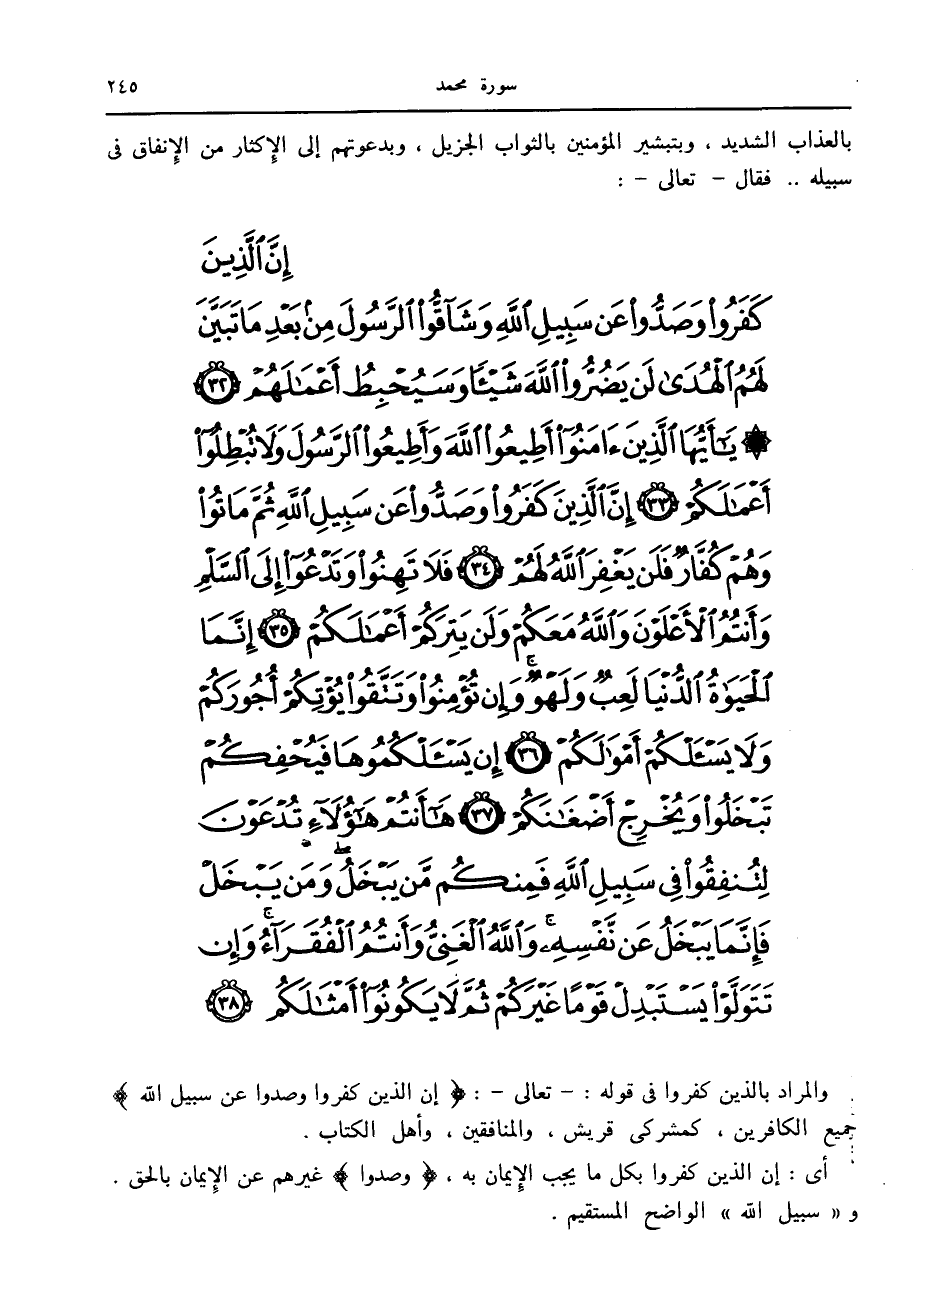 سورة محمد ٢٤٥
بالعذاب الشديد ، وبتبشير المؤمنين بالثواب الجزيل ، وبدعوتهم إلى الإكثار من الإنفاق فى
سبيله .. فقال - تعالى - :
إِنَّ ٱلَّذِينَ
كَفَرُوا۟ وَصَدُّوا۟ عَن سَبِيلِ ٱللَّهِ وَشَآقُّوا۟ ٱلرَّسُولَ مِنۢ بَعْدِ مَا تَبَيَّنَ
لَهُمُ ٱلْهُدَىٰ لَن يَضُرُّوا۟ ٱللَّهَ شَيْـًٔا وَسَيُحْبِطُ أَعْمَـٰلَهُمْ ٣٢
۞ يَـٰٓأَيُّهَا ٱلَّذِينَ ءَامَنُوٓا۟ أَطِيعُوا۟ ٱللَّهَ وَأَطِيعُوا۟ ٱلرَّسُولَ وَلَا تُبْطِلُوٓا۟
أَعْمَـٰلَكُمْ ٣٣ إِنَّ ٱلَّذِينَ كَفَرُوا۟ وَصَدُّوا۟ عَن سَبِيلِ ٱللَّهِ ثُمَّ مَاتُوا۟
وَهُمْ كُفَّارٌ فَلَن يَغْفِرَ ٱللَّهُ لَهُمْ ٣٤ فَلَا تَهِنُوا۟ وَتَدْعُوٓا۟ إِلَى ٱلسَّلْمِ
وَأَنتُمُ ٱلْأَعْلَوْنَ وَٱللَّهُ مَعَكُمْ وَلَن يَتِرَكُمْ أَعْمَـٰلَكُمْ ٣٥ إِنَّمَا
ٱلْحَيَوٰةُ ٱلدُّنْيَا لَعِبٌ وَلَهْوٌ ۚ وَإِن تُؤْمِنُوا۟ وَتَتَّقُوا۟ يُؤْتِكُمْ أُجُورَكُمْ
وَلَا يَسْـَٔلْكُمْ أَمْوَٰلَكُمْ ٣٦ إِن يَسْـَٔلْكُمُوهَا فَيُحْفِكُمْ
تَبْخَلُوا۟ وَيُخْرِجْ أَضْغَـٰنَكُمْ ٣٧ هَـٰٓأَنتُمْ هَـٰٓؤُلَآءِ تُدْعَوْنَ
لِتُنفِقُوا۟ فِى سَبِيلِ ٱللَّهِ فَمِنكُم مَّن يَبْخَلُ ۖ وَمَن يَبْخَلْ
فَإِنَّمَا يَبْخَلُ عَن نَّفْسِهِۦ ۚ وَٱللَّهُ ٱلْغَنِىُّ وَأَنتُمُ ٱلْفُقَرَآءُ ۚ وَإِن
تَتَوَلَّوْا۟ يَسْتَبْدِلْ قَوْمًا غَيْرَكُمْ ثُمَّ لَا يَكُونُوٓا۟ أَمْثَـٰلَكُم ٣٨
والمراد بالذين كفروا فى قوله : - تعالى - : ﴿ إن الذين كفروا وصدوا عن سبيل الله ﴾
جميع الكافرين ، كمشركى قريش ، والمنافقين ، وأهل الكتاب .
أى : إن الذين كفروا بكل ما يجب الإيمان به ، ﴿ وصدوا ﴾ غيرهم عن الإيمان بالحق .
و « سبيل الله » الواضح المستقيم .